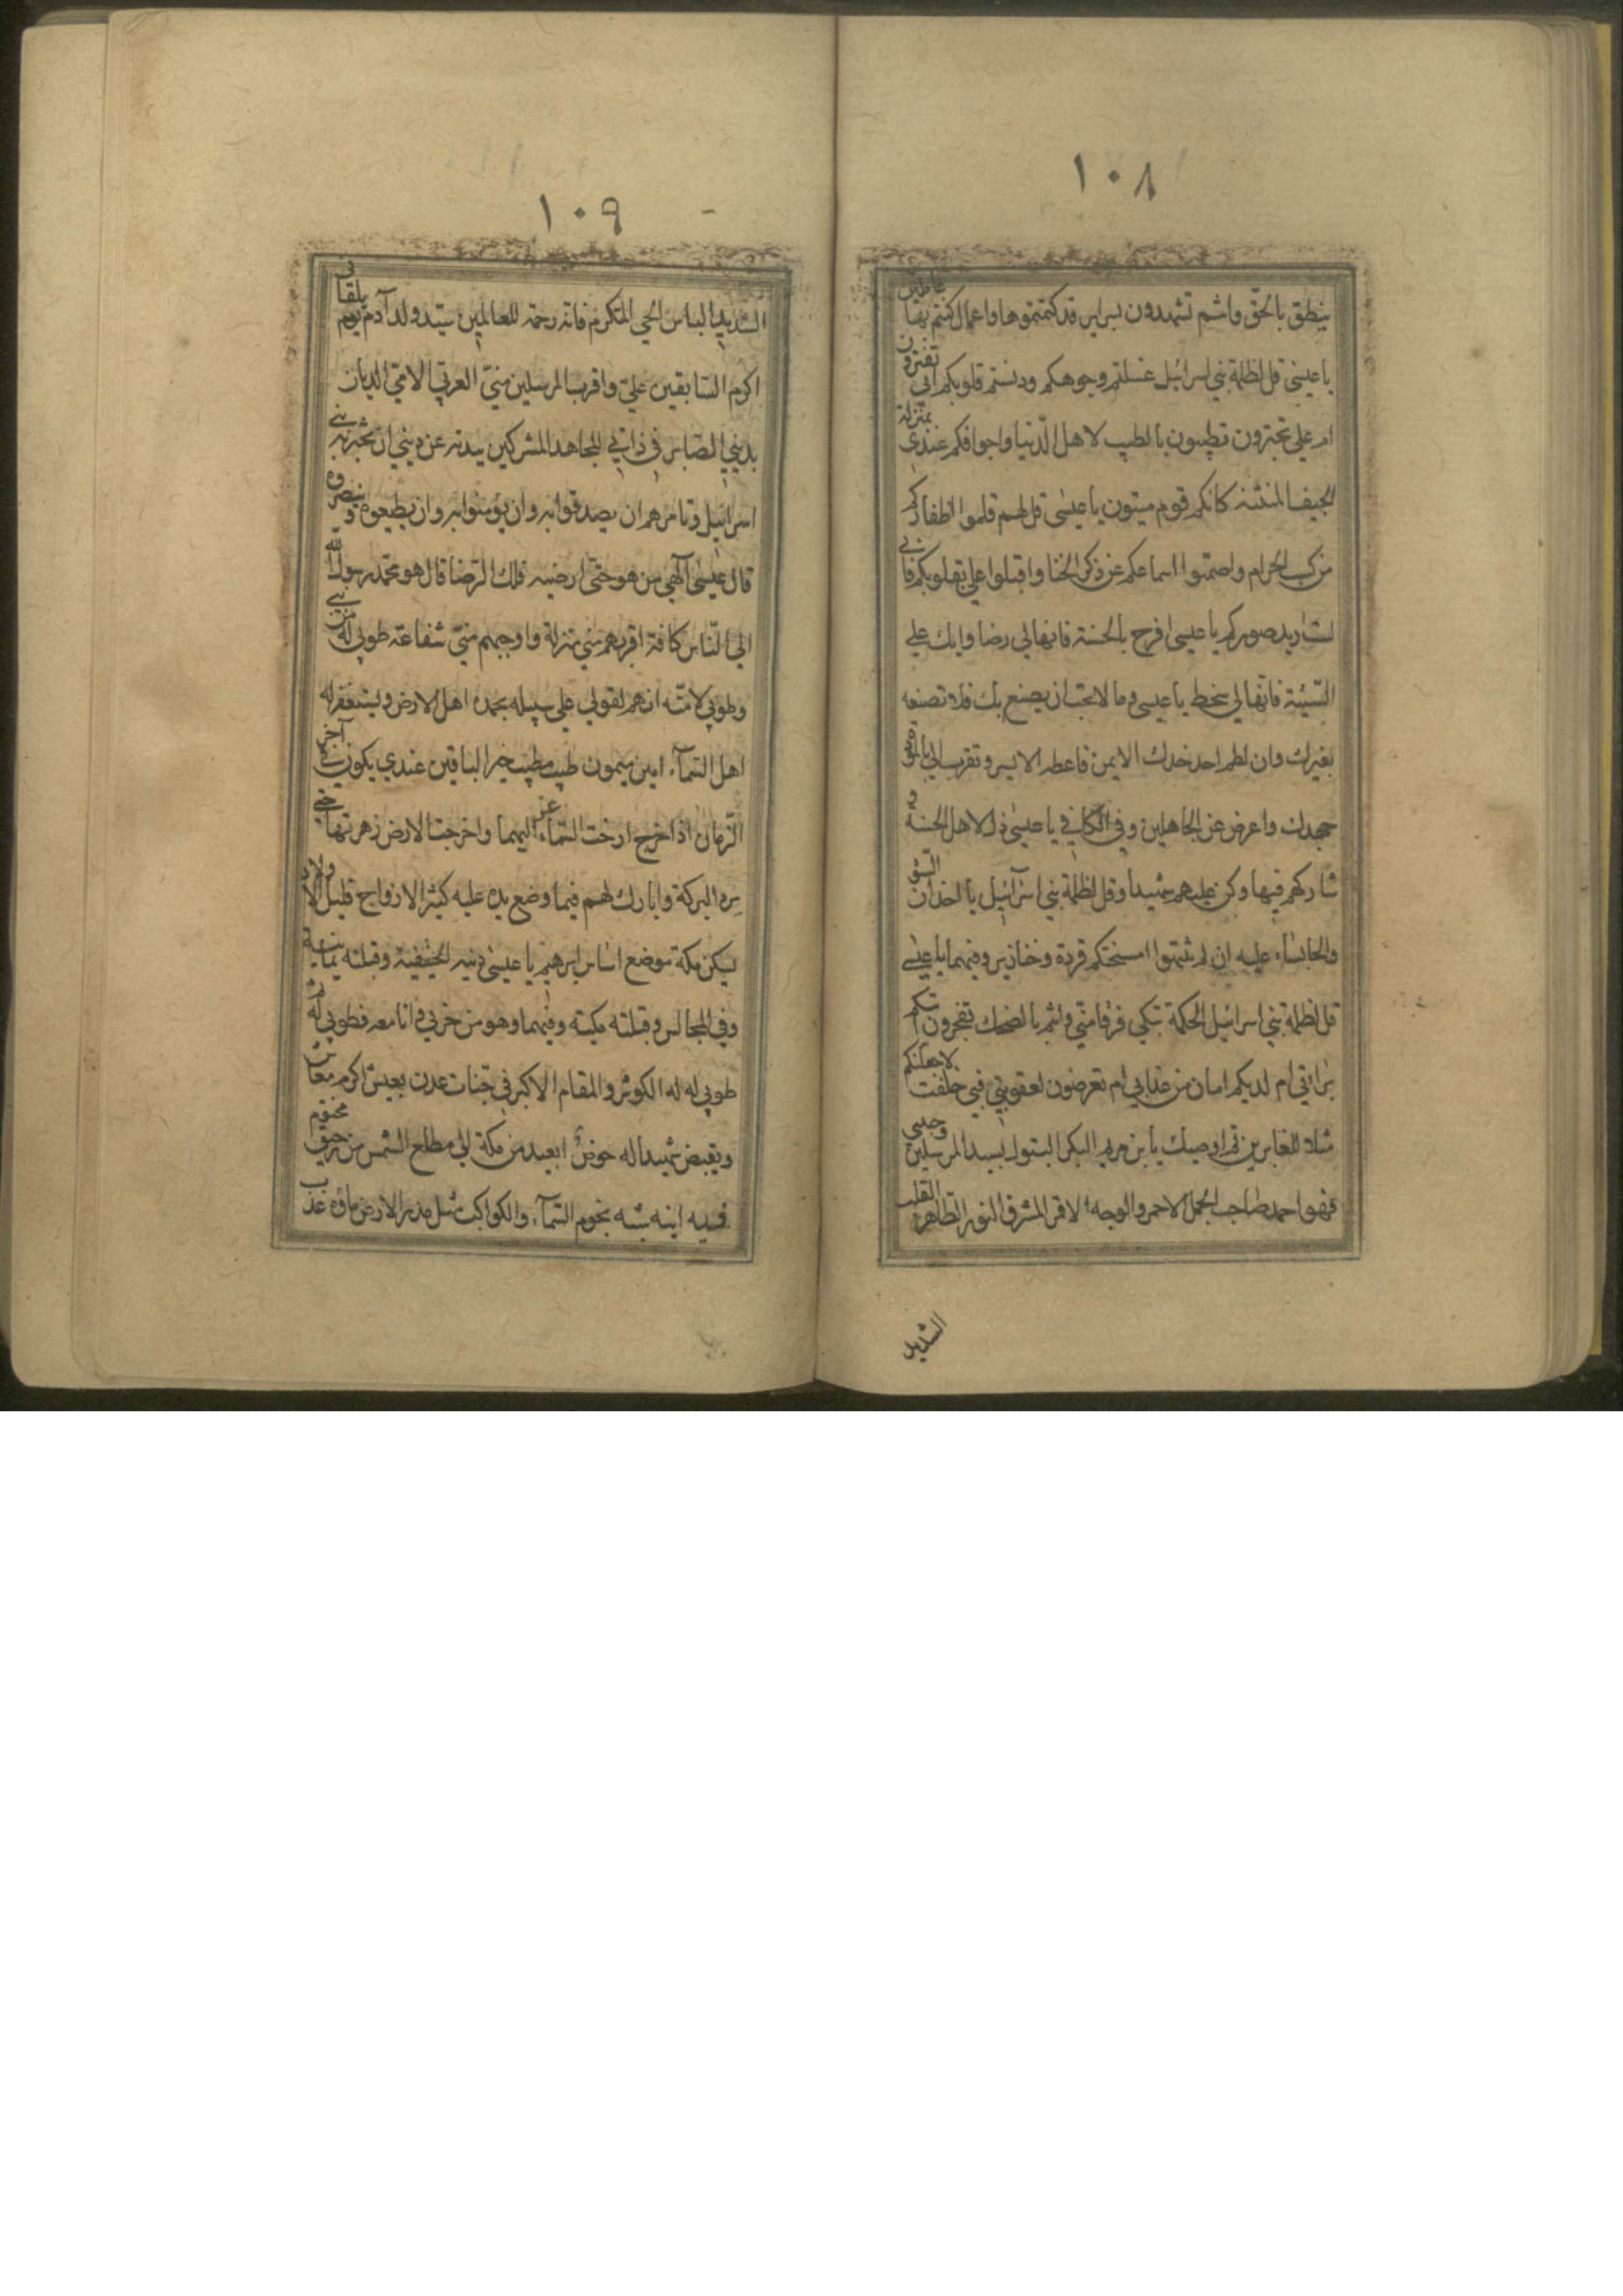 ١٠٨
ينطق بالحق وانتم تشهدون بسرائر قد كتمتموها واعمال كنتم بها عاملين
يا عيسى قل لظلمة بني اسرائيل غسلتم وجوهكم ودنستم قلوبكم ابي تغترون
ام علي تجترون تطيبون بالطيب لاهل الدنيا واجوافكم عندي بمنزلة
الجيف المنتنة كانكم قوم ميتون يا عيسى قل لهم قلموا اظفاركم
من كسب الحرام واصموا اسماعكم عن ذكر الخنا واقبلوا علي بقلوبكم فاني
لست اريد صوركم يا عيسى افرح بالحسنة فانها لي رضا وابك على
السيئة فانها لي سخط يا عيسى وما لا تحب ان يصنع بك فلا تصنعه
بغيرك وان لطم احد خدك الايمن فاعطه الايسر وتقرب الي بالمودة
جهدك واعرض عن الجاهلين وفي الكافي يا عيسى ذل لاهل الحسنة و
شاركهم فيها وكن عليهم شهيدا وقل لظلمة بني اسرآئيل يا اخدان السوء
والجلساء عليه ان لم تنتهوا امسختكم قردة وخنازير وفيهما يا عيسى
قل لظلمة بني اسرائيل الحكمة تبكي فرقا مني وانتم بالضحك تهجرون اتتكم
براءتي ام لديكم امان من عذابي ام تعرضون لعقوبتي فبي حلفت لاجعلنكم
مثلا للغابرين ثم اوصيك يا بن مريم البكر البتول بسيد المرسلين وحبيبي
فهو احمد صاحب الجمل الاحمر والوجه الاقمر المشرق النور الطاهر القلب
الشديد
١٠٩
الشديد الباس الحي المتكرم فانه رحمة للعالمين سيد ولد آدم يوم يلقاني
اكرم السابقين علي واقرب المرسلين مني العربي الامي الديان
بديني الصابر في ذاتي المجاهد المشركين بيده عن ديني ان تخبر به بني
اسرائيل وتامرهم ان يصدقوا به وان يؤمنوا به وان يطيعوه وينصروه
قال عيسى الهي من هو حتى ارضيه فلك الرضا قال هو محمد رسول الله
الى الناس كافة اقربهم مني منزلة واوجبهم مني شفاعة طوبى له من نبي
وطوبى لامته ان هم لقوني على سبيله يحمده اهل الارض ويستغفر له
اهل السمآء امين ميمون طيب مطيب خير الباقين عندي يكون في آخر
الزمان اذا خرج ارخت السماء عزاليها واخرجت الارض زهرتها حتى
يروا البركة وابارك لهم فيما وضع يده عليه كثير الازواج قليل الاولاد
يسكن مكة موضع اساس ابرهيم يا عيسى دينه الحنيفية وقبلته يمانية
وفي المجالس وقبلته مكية وفيهما وهو من حزبي وانا معه فطوبى له ثم
طوبى له له الكوثر والمقام الاكبر في جنات عدن يعيش اكرم معاش
ويقبض شهيدا له حوض ابعد من مكة الى مطلع الشمس من رحيق مختوم
فيه انية شبه نجوم السمآء والكواكب مثل مدر الارض ماؤه عذب